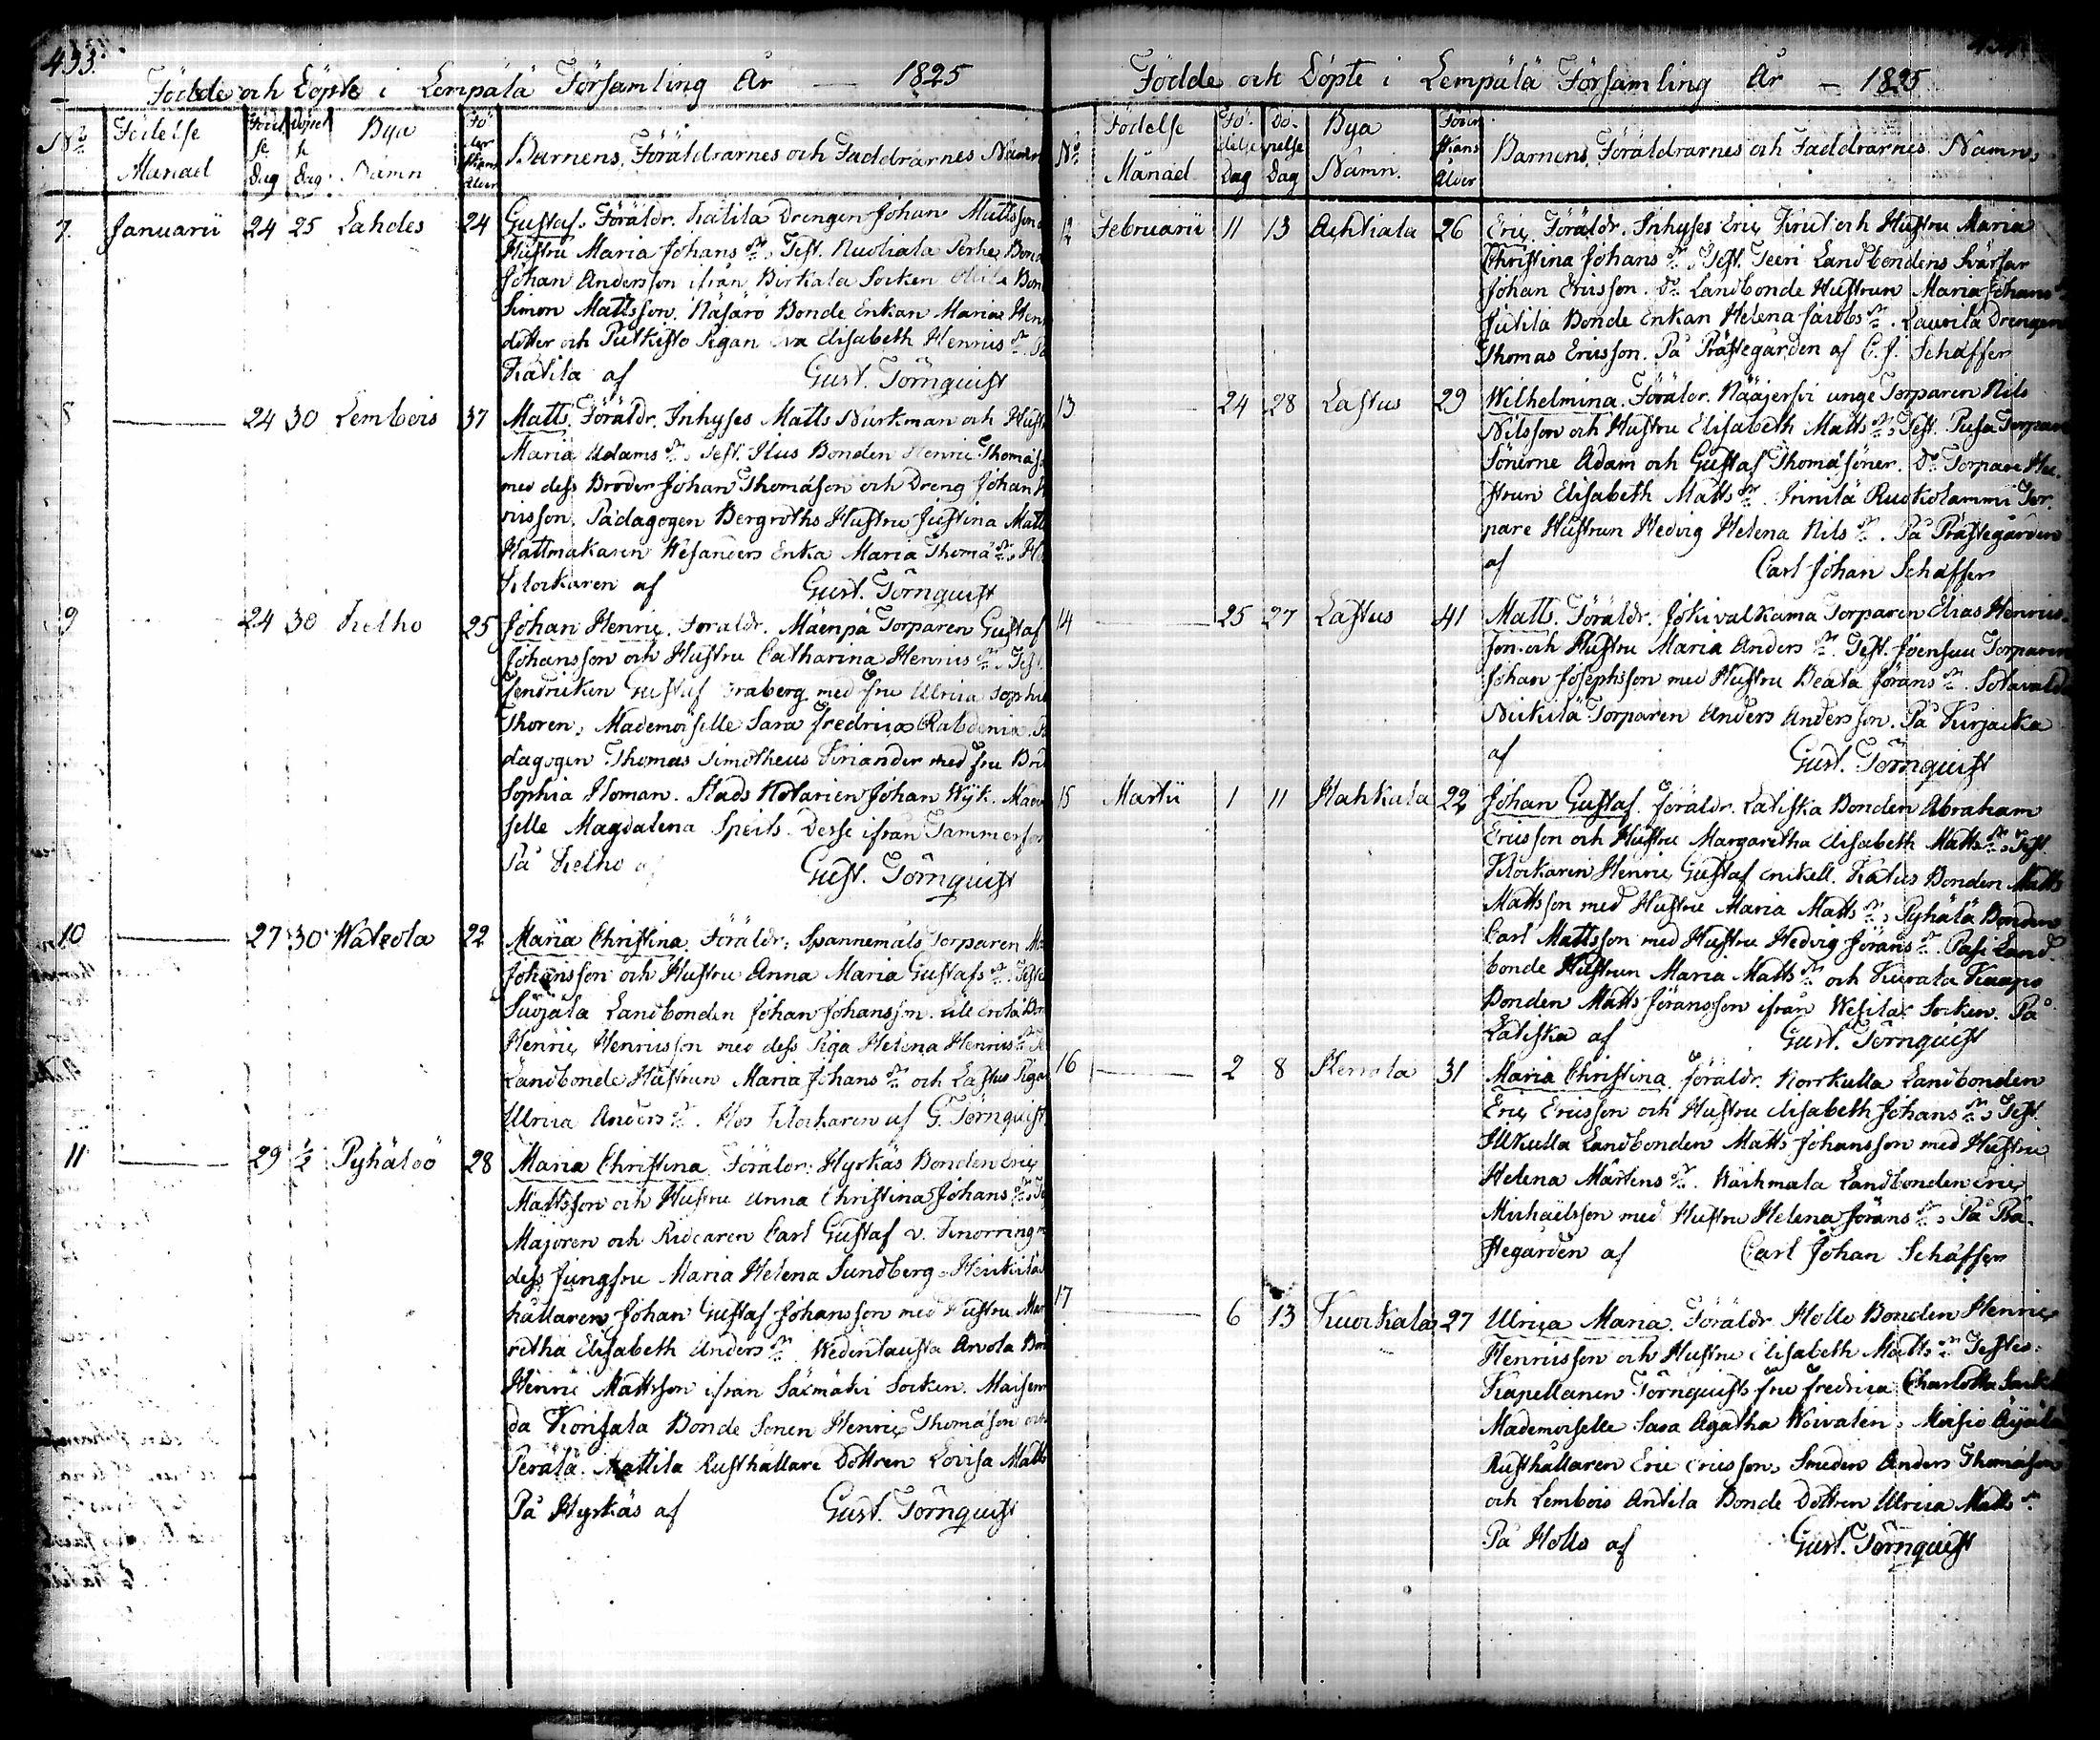 433.
Födde och Döpte i Lempälä Församling År — 1825
No Födelse Månad Födelse Dag Döpelse Dag Bya Namn Föder Skans Ålder Barnens, Föräldrarnes och Faddrarnes Namn
7. Januarii 24 25 Lahdes 24 Gustaf. Föräldr. Kätilä Drengen Johan Mattsson
Hustru Maria Johans dr. Test. Nuoliala Perhe Bond
Johan Andersson ifrån Birkala Socken Mäila Bon
Simon Mattsson. Näsärö Bonde Enkan Maria Hen
dotter och Putkisto Pigan Eva Elisabeth Henrics dr. På
Kätilä af Gust. Törnquist
8 — 24 30 Lembois 37 Matts. Föräldr. Inhyses Matts Nurkman och Hust
Maria Adams dr. Test. Ilus Bonden Henric Thomas
med dess Broder Johan Thomason och Dreng Johan
ricsson. Pädagogen Bergroths Hustru Justina Matts
Hattmakaren Wesanders Enka Maria Thomä dr. H
Klockaren af Gust. Törnquist
9 24 30 Kelho 25 Johan Henric. Föräldr. Mäenpä Torparen Gustaf
Johansson och Hustru Catharina Henrics dr. Test.
Fendricken Gustaf Graberg med Fru Ulrica Sophia
Thoren, Mademoiselle Sara Fredrica Rabdenia. Pä
dagogen Thomas Timotheus Kiriander med Fru Bri
Sophia Homan. Stads Notarien Johan Wijk. Mad
selle Magdalena Speits. Desse ifrån Tammerfors
På Kelho af Gust. Törnquist
10 — 27 30 Walkola 22 Maria Christina. Föräldr. Spannemäls Torparen M
Johansson och Hustru Anna Maria Gustafs dr. Test
Suojala Landbonden Johan Johansson. Lile Erola Bon
Henric Henricsson med dess Piga Helena Henrics dr.
Landbonde Hustrun Maria Johans dr. och Lastus Piga
Ulrica Anders dr. Hos Klockaren af G. Törnquist.
11 — 29 ½ Pyhälöö 28 Maria Christina. Föräldr. Hyrkäs Bonden Eric
Mattsson och Hustru Anna Christina Johans dr. Te
Majoren och Riddaren Carl Gustaf v. Knorring
dess Jungfru Maria Helena Sundberg. Heikkilä
hållaren Johan Gustaf Johansson med Hustru Mar
retha Elisabeth Anders dr. Wedentausta Arvola Bon
Henric Mattsson ifrån Säxmäki Socken. Maisem
da Konsala Bonde Sonen Henric Thomason och
Perälä. Mattila Rusthållare Dottren Lovisa Matts
På Hyrkäs af Gust. Törnquist
Födde och Döpte i Lempälä Församling År — 1825
No Födelse Månad Födelse Dag Döpelse Dag Bya Namn. Föder Skans Ålder Barnens, Föräldrarnes och Faddrarnes Namn
12 Februarii 11 13 Achtiala 26 Eric. Föräldr. Inhyses Eric Knut och Hustru Maria
Christina Johans dr. Test. Teeri Landbondens Svärfar
Johan Ericsson. Do Landbonde Hustrun Maria Johans
Jutila Bonde Enkan Helena Jacobs dr. Laurila Drengen
Thomas Ericsson. På Prästegården af C. J. Schaffer
13 — 24 28 Lastus 29 Wilhelmina. Föräldr. Nääjersvi unge Torparen Nils
Nilsson och Hustru Elisabeth Matts dr. Test. Pusa Torpare
Sönerne Adam och Gustaf Thomasöner. Do Torpare Hu-
strun Elisabeth Matts dr. Irnilä Ruokolammi Tor-
pare Hustrun Hedvig Helena Nils dr. På Prästegården
af Carl Johan Schaffer
14 — 25 27 Lastus 41 Matts. Föräldr. Jokivalkama Torparen Elias Henrics-
son och Hustru Maria Anders dr. Test. Joensuu Torparen
Johan Josephsson med Hustru Beata Jörans dr. Sotavalda
Nickilä Torparen Anders Andersson. På Kurjacka
af Gust. Törnquist
15 Martii 1 11 Hahkala 22 Johan Gustaf. Föräldr. Latiska Bonden Abraham
Ericsson och Hustru Margaretha Elisabeth Matts dr. Test.
Klockaren Henric Gustaf Enikell. Katus Bonden Matts
Mattsson med Hustru Maria Matts dr. Pyhälä Bonden
Carl Mattsson med Hustru Hedvig Jörans dr. Pasi Land-
bonde Hustrun Maria Matts dr. och Kurala Kaapo
Bonden Matts Jöransson ifrån Wesilax Socken. På
Latiska af Gust. Törnquist
16 — 2 8 Herrala 31 Maria Christina. Föräldr. Norrkulla Landbonden
Eric Ericsson och Hustru Elisabeth Johans dr. Test.
Illkulla Landbonden Matts Johansson med Hustru
Helena Mårtens dr. Wäihmala Landbonden Eric
Michaelsson med Hustru Helena Jörans dr. På Prä-
stegården af Carl Johan Schaffer
17 — 6 13 Kuorkala 27 Ulrica Maria. Föräldr. Hollo Bonden Henric
Henricsson och Hustru Elisabeth Matts dr. Testes.
Kapellanen Törnquists Fru Fredrica Charlotta
Mademoiselle Sara Agatha Woivalen. Moisio Ajala
Rusthållaren Eric Ericsson, Smeden Anders Thomason
och Lembois Antila Bonde Dottren Ulrica Matts dr.
På Hollo af Gust. Törnquist